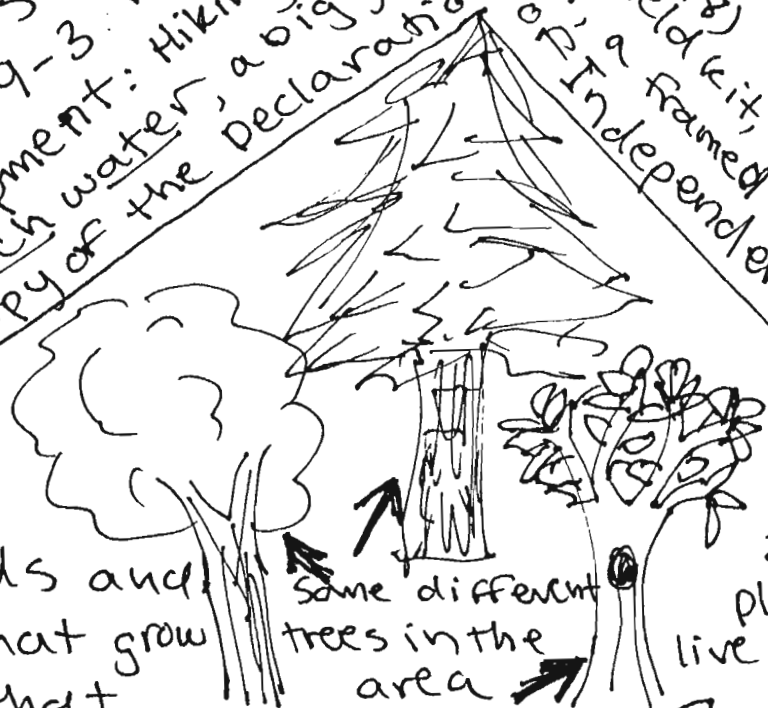 9-3
pment: Hikin
ch water, a big
py of the Declaratio
eld kit,
of, a framed
Independe
ds and
hat grow
hat
some different
trees in the
area
pl
live